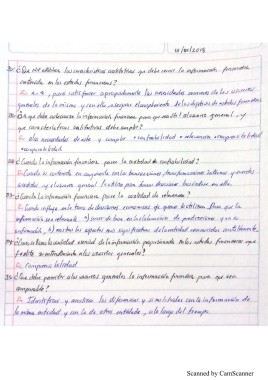 ¿De que adolecen las características cualitativas que debe reunir la información financiera contenida en los estados financieros?
para satisfacer apropiadamente las necesidades comunes de los usuarios generales de la misma y con ello asegurar el cumplimiento de los objetivos de estados financieros
que debe la información financiera para que sea útil al usuario general, y
que características cualitativas debe cumplir?
las necesidades de este y cumplir • confiabilidad • relevancia • comprensibilidad
• comparabilidad
¿Cuándo la información financiera posee la cualidad de confiabilidad?
Cuando su contenido es congruente con las transacciones, transformaciones internas y eventos
sucedidos y el usuario general la utiliza para tomar decisiones basándose en ella.
¿Cuándo la información financiera posee la cualidad de relevancia?
Cuando influye en la toma de decisiones económicas de quienes la utilizan. Para que la
información sea relevante: a) servir de base en la elaboración de predicciones y en su
confirmación, b) mostrar los aspectos más significativos de la entidad reconocidos contablemente
la cualidad esencial de la información proporcionada en los estados financieros que
facilita su entendimiento a los usuarios generales?
Comprensibilidad
¿Que debe permitir a los usuarios generales la información financiera para que sea
comparable?
Identificar y analizar las diferencias y similitudes con la información de
la misma entidad y con la de otras entidades, a lo largo del tiempo.
Scanned by CamScanner